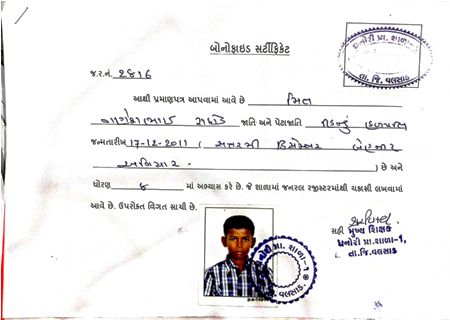 બોનોફાઇડ સર્ટીફિકેટ
ધનોરી પ્રા. શાળા-૧
તા. જિ. વલસાડ
જ.ર.નં. 2816
આથી પ્રમાણપત્ર આપવામાં આવે છે મિત
જાતિ અને પેટાજાતિ હિન્દુ
જન્મતારીખ 17-12-2011 ( સત્તરમી ડિસેમ્બર બેહજાર
અગિયાર ) છે અને
ધોરણ ૪ માં અભ્યાસ કરે છે. જે શાળામાં જનરલ રજીસ્ટરમાંથી ચકાસી લખવામાં
આવે છે. ઉપરોક્ત વિગત સાચી છે.
સહી મુખ્ય શિક્ષક
ધનોરી પ્રા.શાળા-1,
તા.જિ.વલસાડ
ધનોરી પ્રા. શાળા-૧
તા. જિ. વલસાડ.